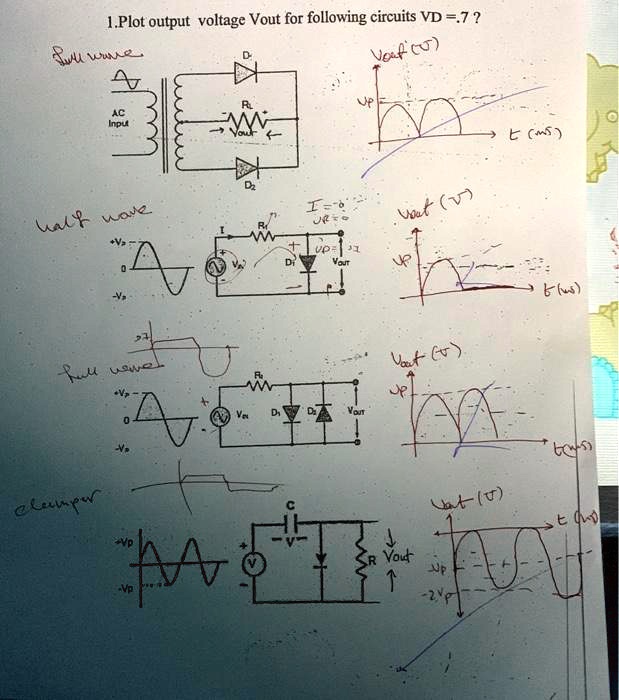 1.Plot output voltage Vout for following circuits VD =.7 ?
full wave
Vout (V)
D₁
AC
Input
RL
Vout
Vp
t (ms)
D₂
half wave
I = 0
VR = 0
Vout (V)
+Vp
0
-Vp
I
R₁
+
Vin
D₁
VD = .7
Vout
Vp
t (ms)
.7
full wave
Vout (V)
+Vp
0
-Vp
+
-
R₁
Vin
D₁
D₂
Vout
Vp
t (ms)
clamper
Vout (V)
C
- V -
+Vp
-Vp
+
-
V
R
Vout
t (ms)
-Vp
-2Vp